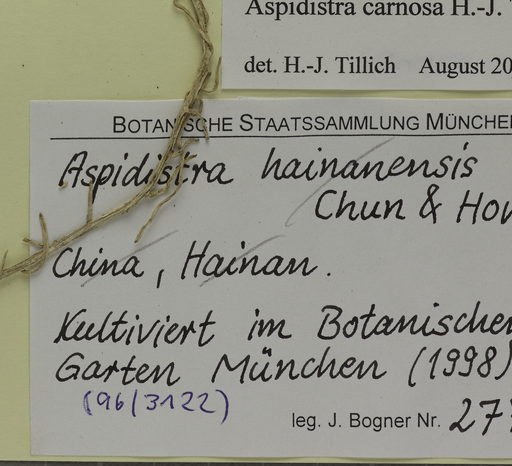 Aspidistra carnosa H.-J.
det. H.-J. Tillich August 20
BOTANISCHE STAATSSAMMLUNG MÜNCHEN
Aspidistra hainanensis
Chun & How
China, Hainan.
Kultiviert im Botanischen
Garten München (1998)
(96/3122)
leg. J. Bogner Nr. 27